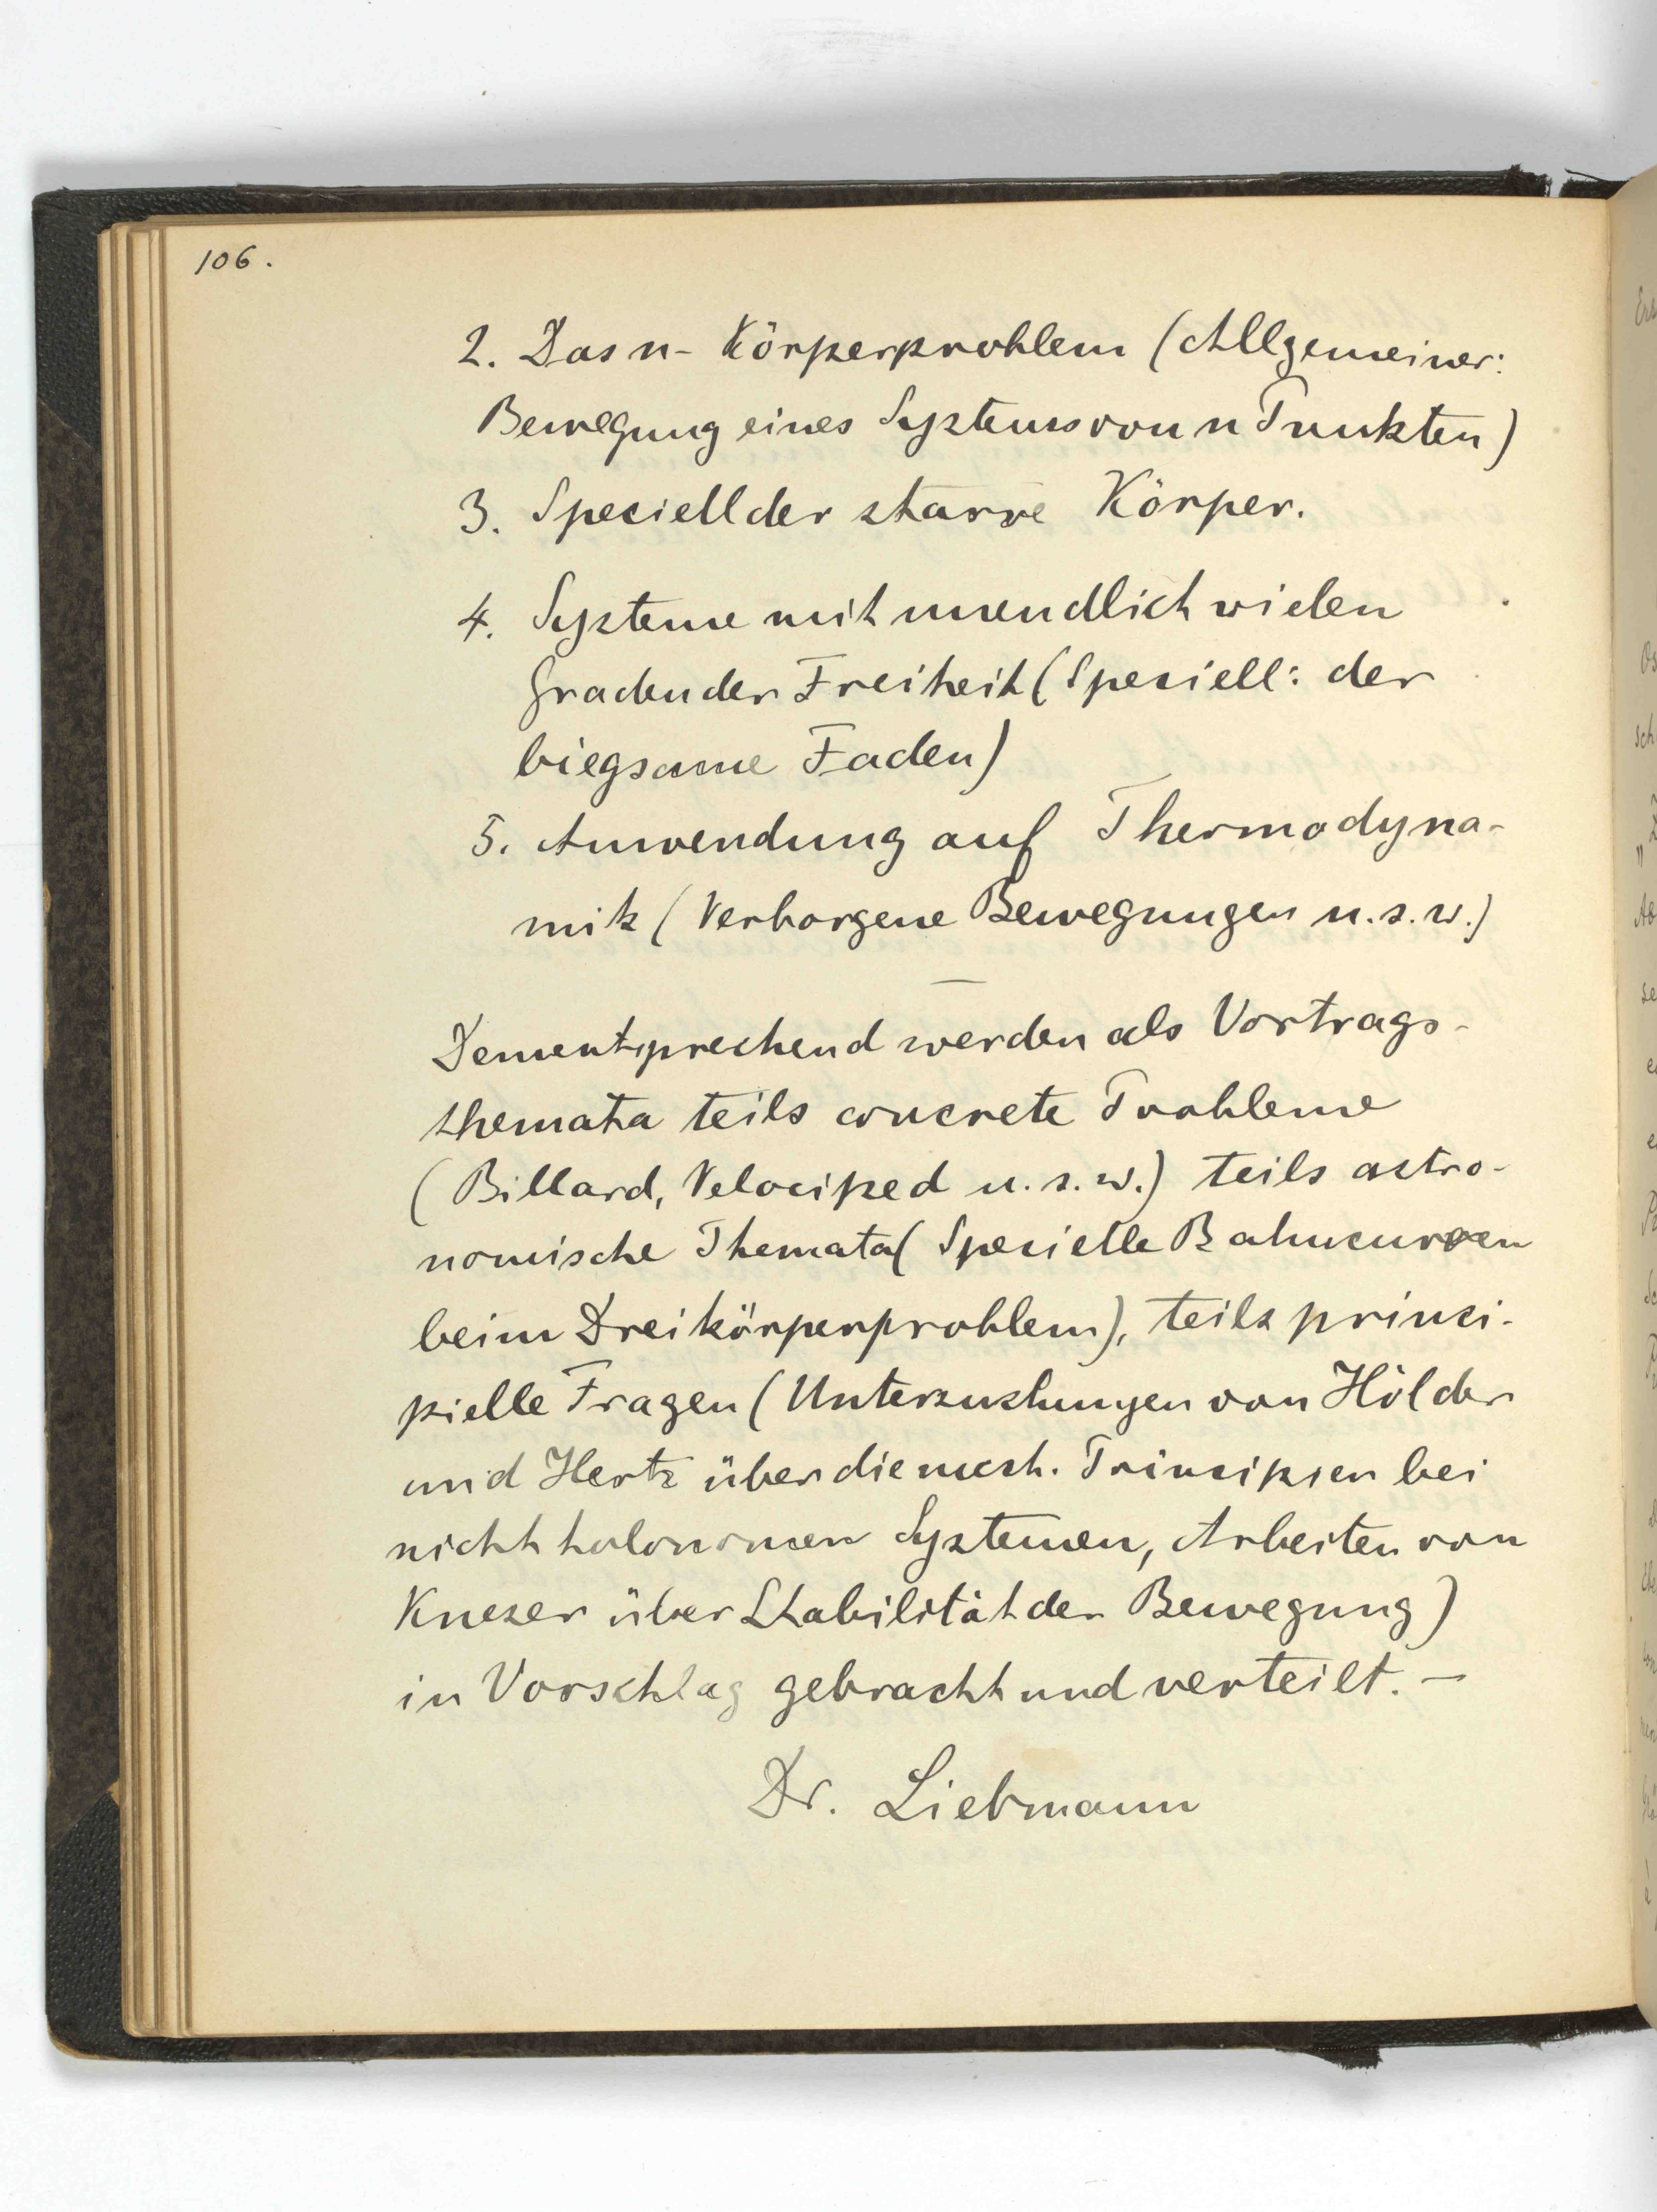 106.
2. Das n-Körperproblem (Allgemeiner:
Bewegung eines Systems von n Punkten)
3. Speciell der starre Körper.
4. Systeme mit unendlich vielen
Graden der Freiheit (Speciell: der
biegsame Faden)
5. Anwendung auf Thermodyna-
mik (Verborgene Bewegungen u.s.w.)
—
Dementsprechend werden als Vortrags-
themata teils concrete Probleme
(Billard, Velociped u.s.w.) teils astro-
nomische Themata (Specielle Bahncurven
beim Dreikörperproblem), teils princi-
pielle Fragen (Untersuchungen von Hölder
und Hertz über die mech. Principien bei
nicht holonomen Systemen, Arbeiten von
Kneser über Stabilität der Bewegung)
in Vorschlag gebracht und verteilt. —
Dr. Liebmann